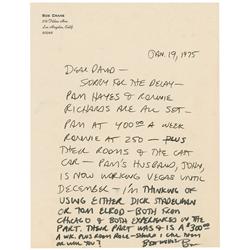 BOB CRANE
Los Angeles, Calif.
JAN. 19, 1975
DEAR DAVID —
SORRY FOR THE DELAY —
PAM HAYES & RONNIE
RICHARDS ARE ALL SET —
PAM AT 400.00 A WEEK
RONNIE AT 250 — PLUS
THEIR ROOMS & THE CAST
CAR — PAM'S HUSBAND, JOHN,
IS NOW WORKING VEGAS UNTIL
DECEMBER — I'M THINKING OF
USING EITHER DICK STADELMAN
OR TOM ELROD — BOTH FROM
CHICAGO & BOTH EXPERIENCED IN THE
PART. THEIR PART WAS & IS A $300.00
A WK. PLUS ROOM ROLE — SHOULD I CALL THEM
OR WILL YOU?
BEST WISHES, Bob